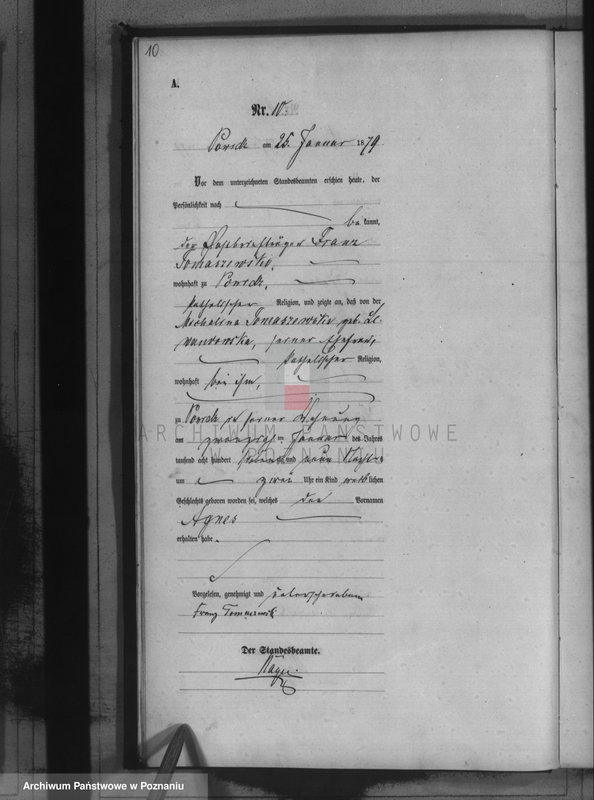 10
A.
Nr. 10.
am 25. Januar 1879
Vor dem unterzeichneten Standesbeamten erschien heute, der
Persönlichkeit nach
bekannt,
der Franz
Tomaszewski,
wohnhaft zu
katholischer Religion, und zeigte an, daß von der
Michalina Tomaszewska geb.
seiner Ehefrau,
katholischer Religion,
wohnhaft bei ihm,
zu in seiner Wohnung
am im Januar des Jahres
tausend acht hundert siebenzig und neun
um zwei Uhr ein Kind weiblichen
Geschlechts geboren worden sei, welches den Vornamen
Agnes
erhalten habe.
Vorgelesen, genehmigt und unterschrieben
Franz Tomaszewski
Der Standesbeamte.
ARCHIWUM PAŃSTWOWE
W POZNANIU
Archiwum Państwowe w Poznaniu